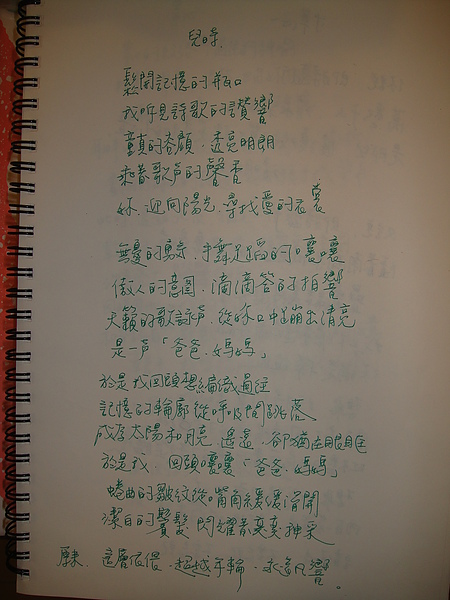 兒時
鬆開記憶的瓶口
我听見詩歌的讚響
童真的容顏．透亮明朗
乘着歌声的馨香
妳．迎向陽光．尋找愛的衣裳
無憂的．手舞足蹈的嚷嚷
傲人的意圖．滴滴答的拍響
天籟的歌詠声．從妳口中蹦出清亮
是一声「爸爸．媽媽」
於是我回頭想編織過往
記憶的輪廓從呼吸間跳蕩
成了太陽和月亮．遙遠．卻猶在眼眶
於是我．回頭嚷嚷「爸爸．媽媽」
蜷曲的皺紋從嘴角緩緩滑開
潔白的鬢髮閃耀着奕奕神采
原來．這層依偎．超越年輪．永遠凡響。